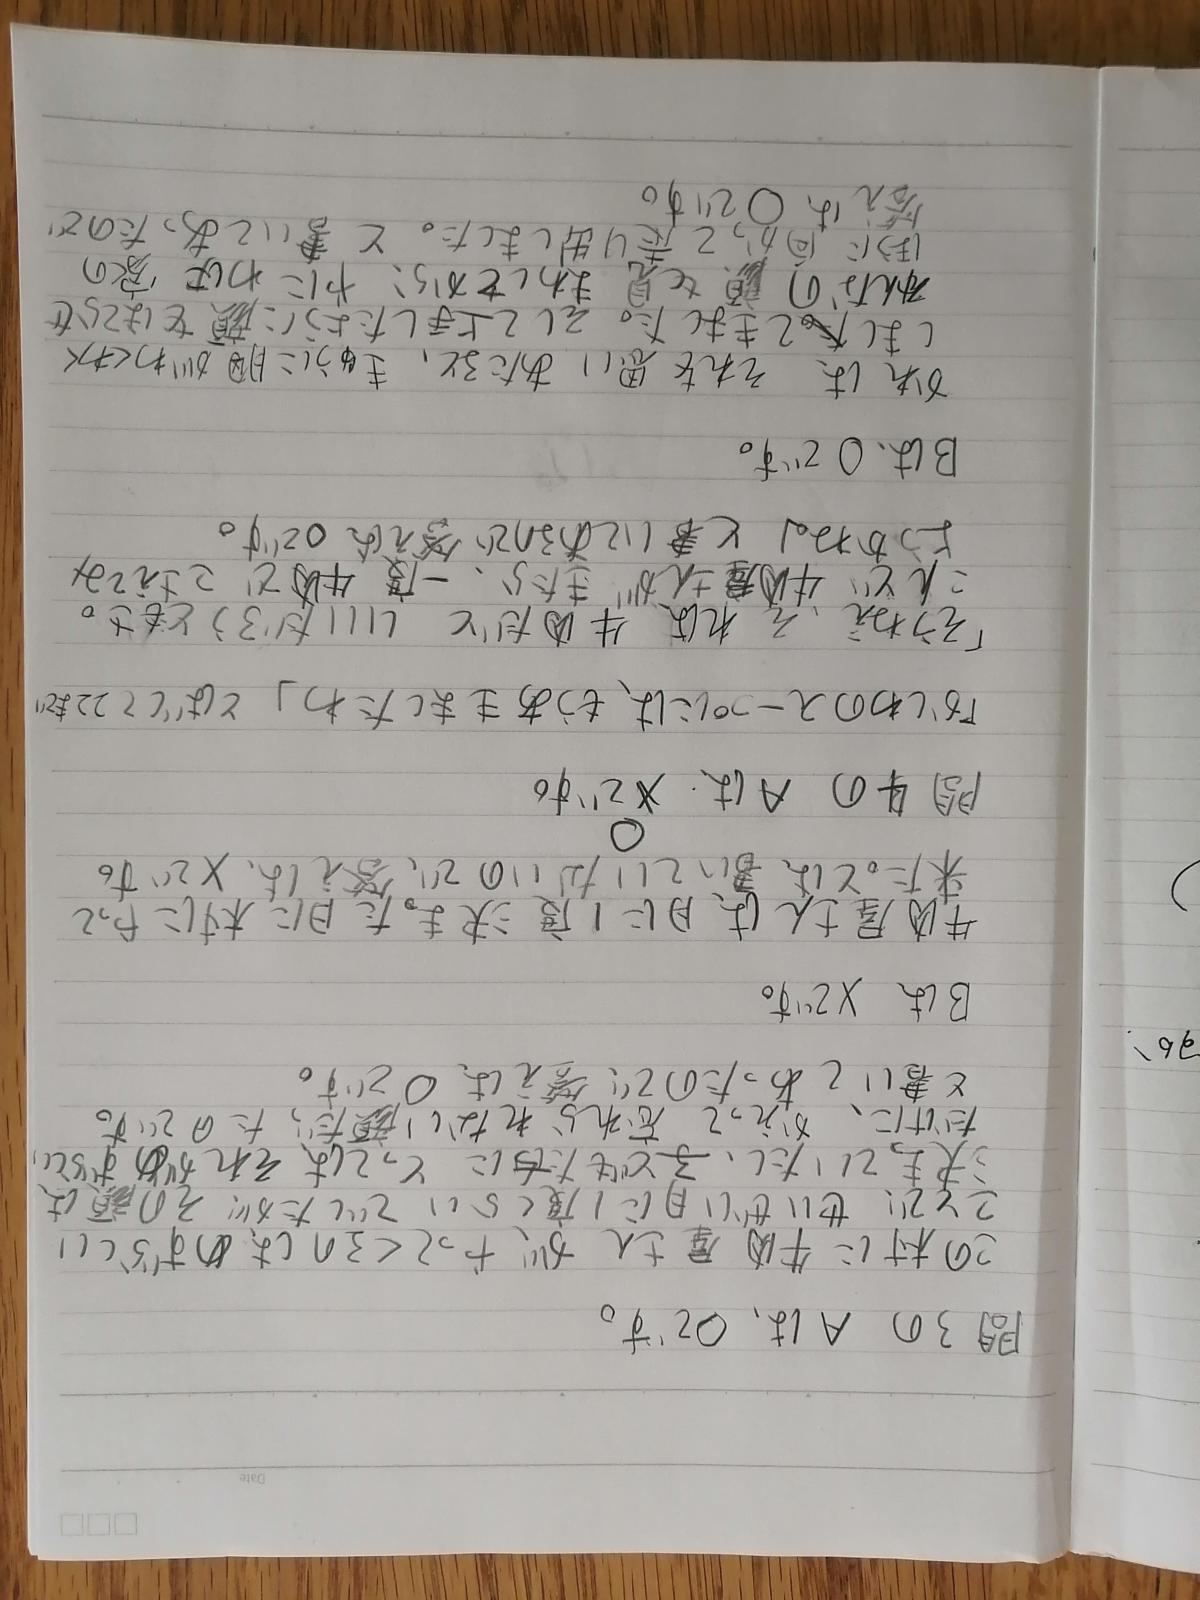 Date
問3の Aは、○です。
この村に牛肉屋さんが、やってくるのは、めずらしい
ことで、せいぜい月に1度くらいでしたが、その顔は
決まっていたし、子どもたちにとっては、それがめずらしい
だけに、かえって忘れられない顔だったのです。
と書いてあったので、答えは、○です。
Bは、×です。
牛肉屋さんは、月に1度決まった日に村にやって
来た。とは、書いていないので、答えは、×です。
○
問4の Aは、×です。
「かしわのスープには、もうあきましたわ」とばくて22まで
「そうねえ、それは、牛肉だといいだろうともさ。
こんど牛肉屋さんがきたら、一度牛肉でこさえてみ
ようかね」と書いてあるので答えは、○です。
Bは、○です。
かれは、それを思いあたると、きゅうに胸がわくわく
しました。そして上手したように顔をほてらせ
みんなの顔を見まわしてから、やにわに家の
ほうに向かって走り出しました。と書いてあったので
答えは、○です。